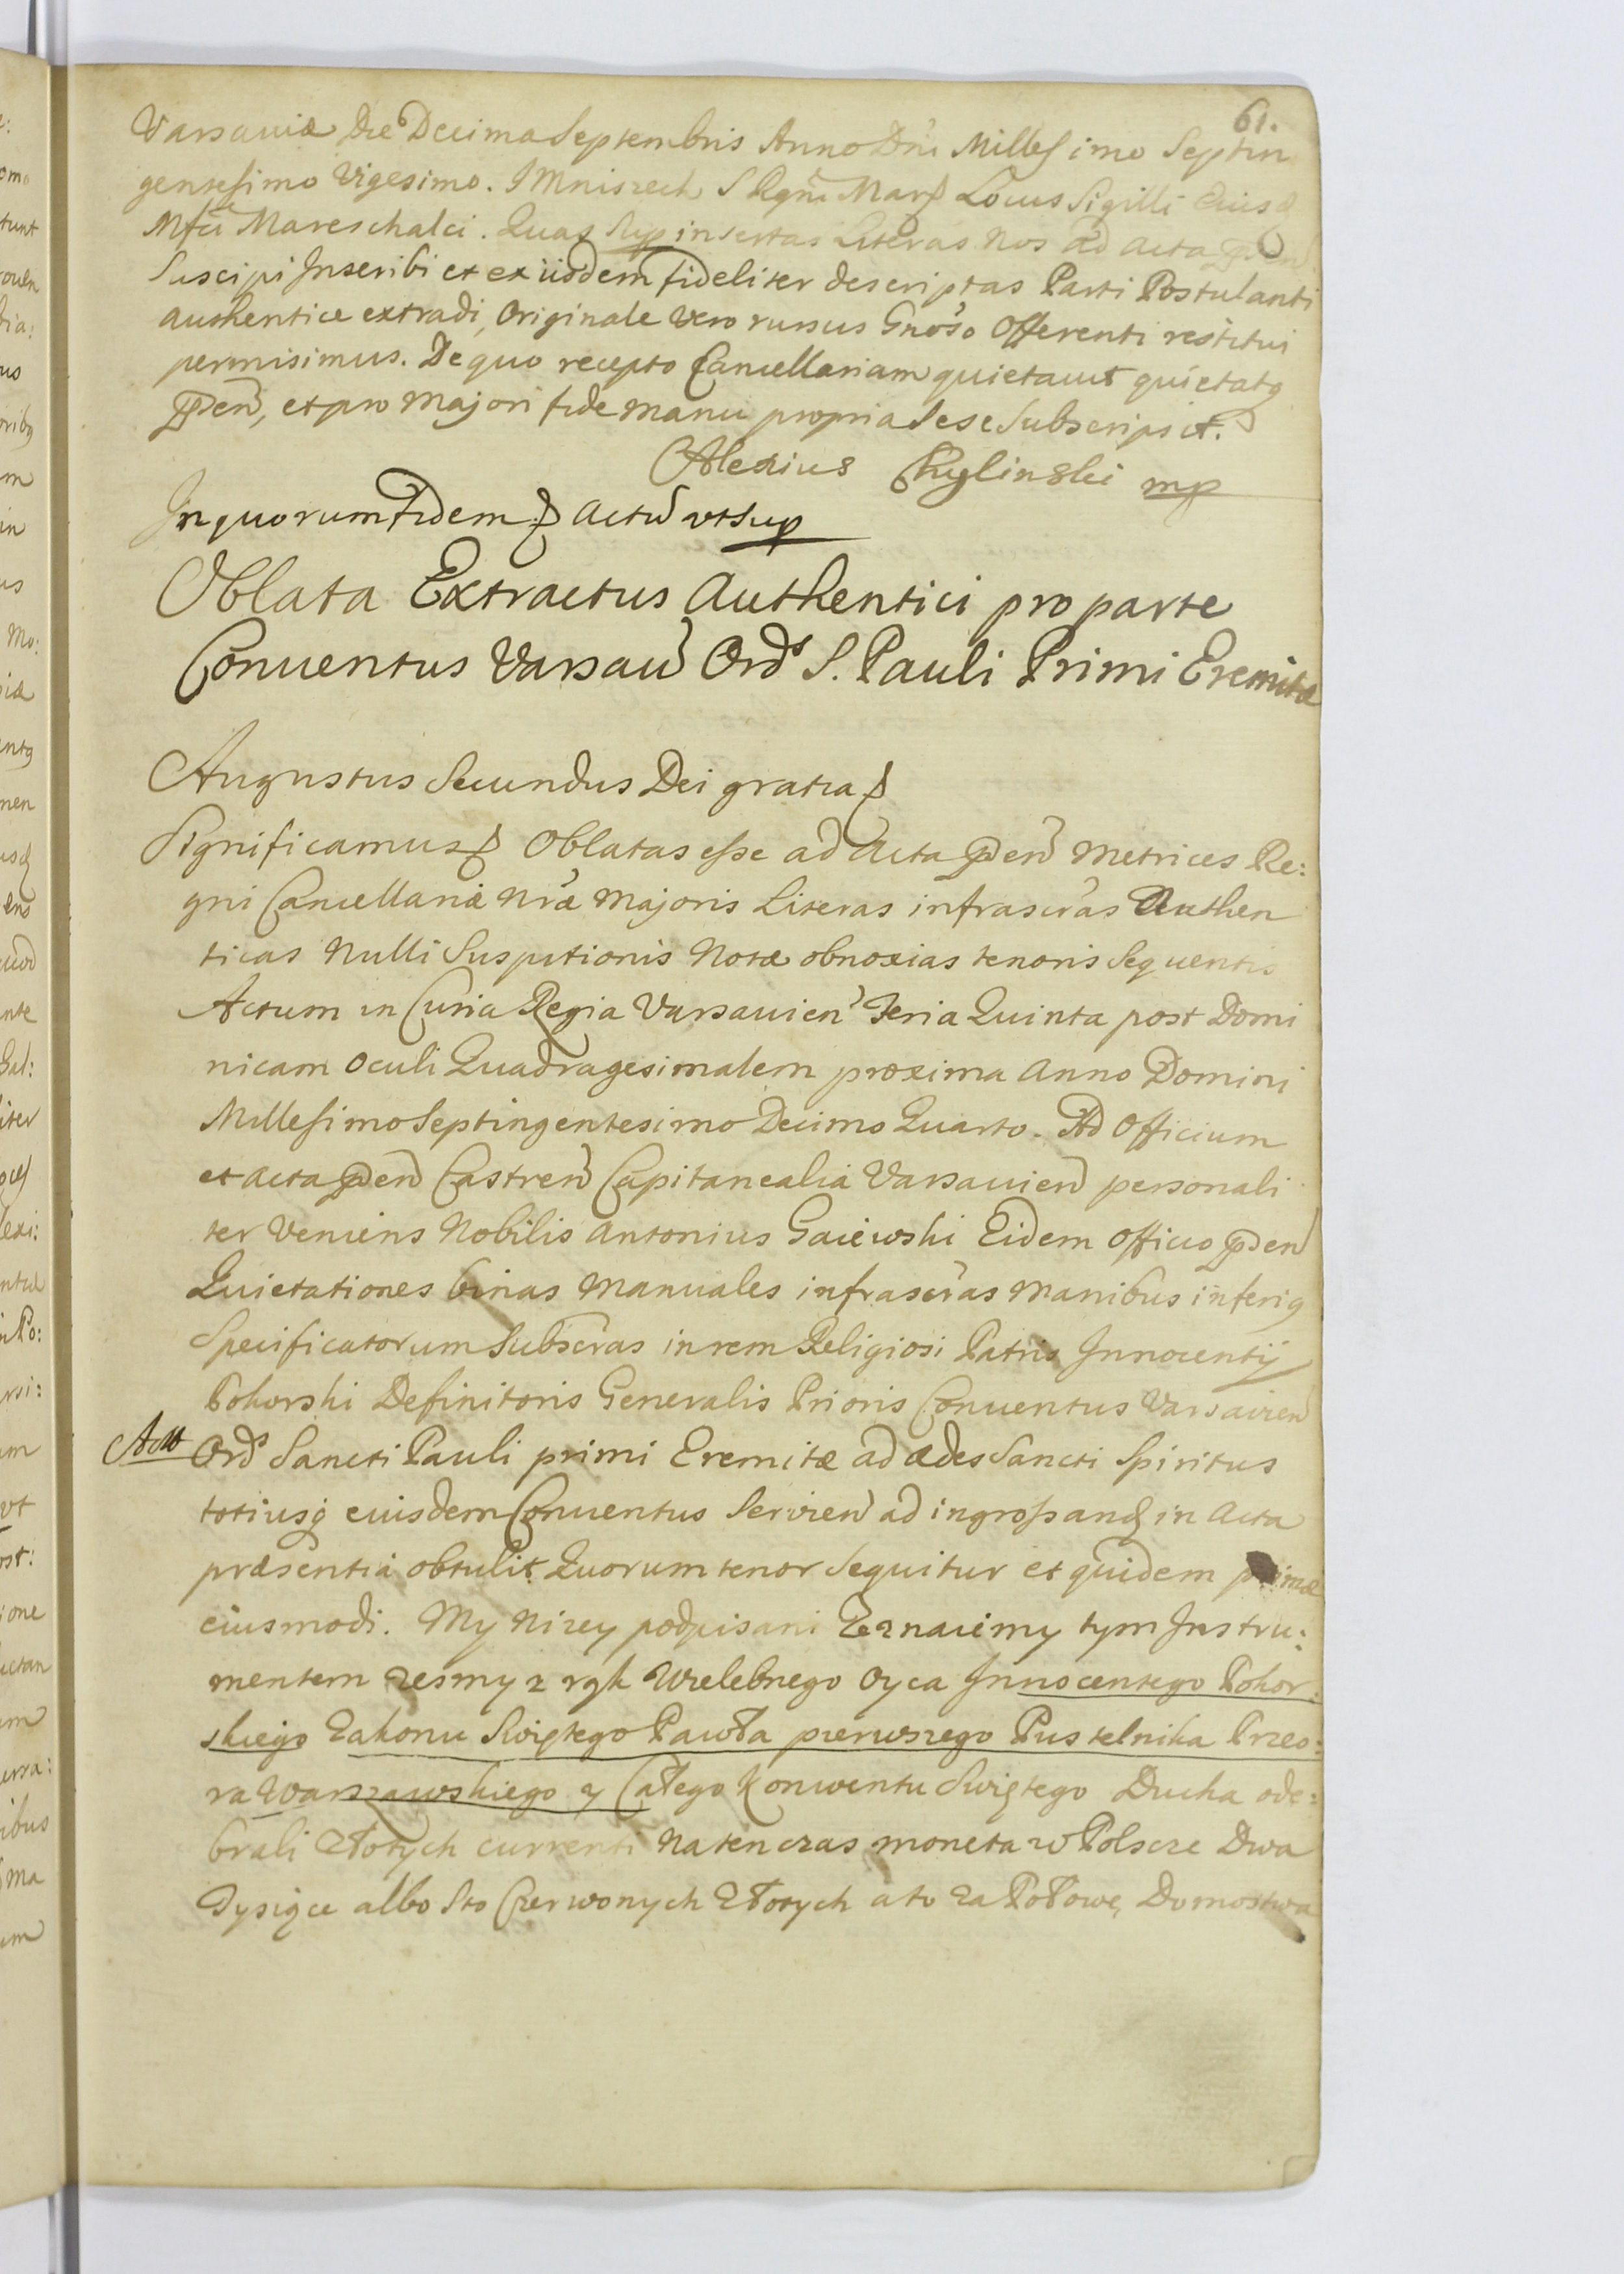 61.
Varsaviæ Die Decima Septembris Anno Dni Millesimo Septin
gentesimo Vigesimo. I Mniszech S Regni Mar Locus Sigilli Eius
Mfci Mareschalci. Quas Sup insertas Literas Nos ad Acta
Suscipi Inscribi et ex iisdem fideliter descriptas Parti Postulanti
authentice extradi, Originale Vero rursus Gnoso Offerenti restitui
permisimus. De quo recepto Cancellariam quietavit quietatq
pñden, et pro Majori fide manu propria sese Subscripsit.
Alexius Chylinski mp
In quorum Fidem Actũ vt Sup
Oblata Extractus Authentici pro parte
Conuentus Varsaũ Ords S. Pauli Primi Eremitæ
Augustus Secundus Dei gratia
Significamus Oblatas esse ad Acta pñden Metrices Re:
gni Cancellariæ Nræ Majoris Literas infrascras Authen
ticas Nulli Suspitionis Notæ obnoxias tenoris Sequentis
Actum in Curia Regia Varsauien Feria Quinta post Domi
nicam Oculi Quadragesimalem proxima Anno Domini
Millesimo Septingentesimo Decimo Quarto. Ad Officium
et Acta pñden Castreñ Capitanealia Varsauien personali
ter Veniens Nobilis Antonius Gaiewski Eidem Officio pñden
Quietationes binas Manuales infrascras Manibus inferiq
Specificatorum Subscras in rem Religiosi Patris Innocentij
Pokorski Definitoris Generalis Prioris Conuentus Varsavien
Ords Sancti Pauli primi Eremitæ ad ædes Sancti Spiritus
totiusq eiusdem Conuentus Servien ad ingrossand in Acta
præsentia obtulit Quorum tenor Sequitur et quidem primæ
eiusmodi. My Nizey podpisani Zeznaiemy tym Instru:
mentem zesmy z rąk Wielebnego Oyca Innocentego Pokor:
skiego Zakonu Swiętego Pawła pierwszego Pustelnika Przeo:
ra Warszawskiego y Całego Konwentu Swiętego Ducha ode:
brali Złotych currenti Natenczas moneta w Polscze Dwa
Tysiące albo Sto Czerwonych Złotych a to za Połowę Domostwa